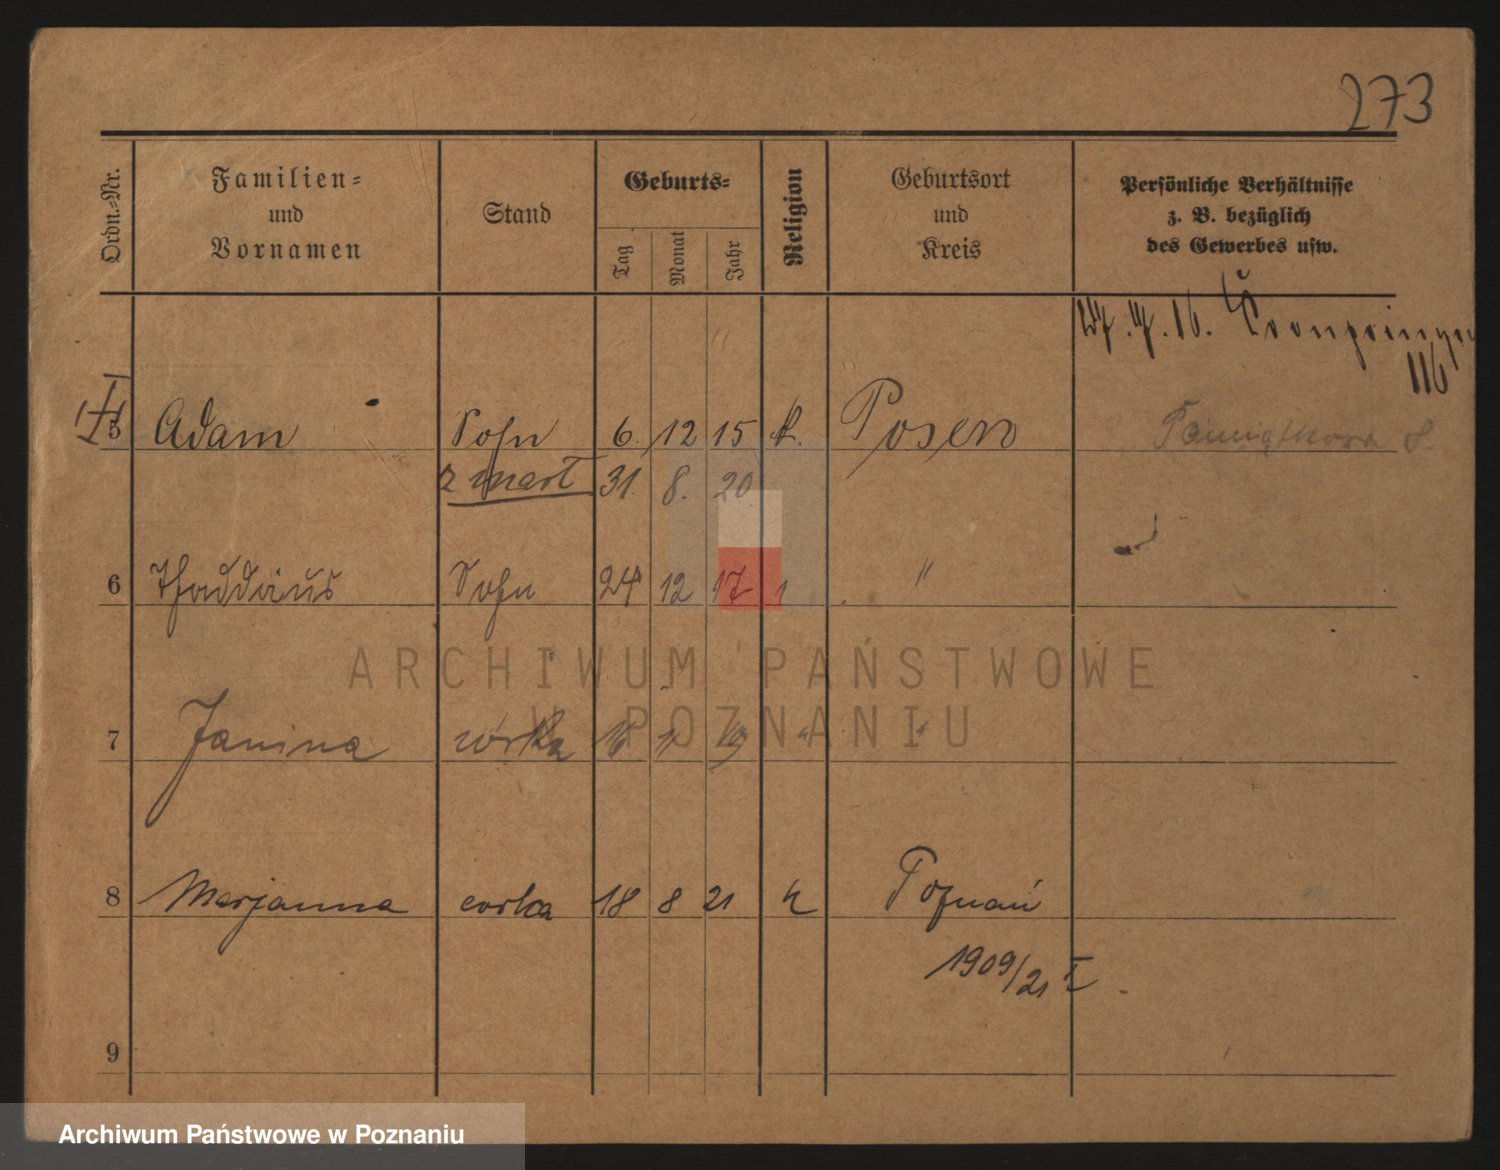 273
Ordn.-Nr.
Familien-
und
Vornamen
Stand
Geburts-
Tag
Monat
Jahr
Religion
Geburtsort
und
Kreis
Persönliche Verhältnisse
z. B. bezüglich
des Gewerbes usw.
27. 7. 16. Kronprinzen
116
5 Adam Sohn 6. 12 15 k. Posen
zmarł 31. 8. 20
6 Thaddäus Sohn 24 12 17 "
7 Janina córka 19
8 Marjanna corka 18 8 21 k Poznań
1909/21 I
9
ARCHIWUM PAŃSTWOWE
W POZNANIU
Archiwum Państwowe w Poznaniu